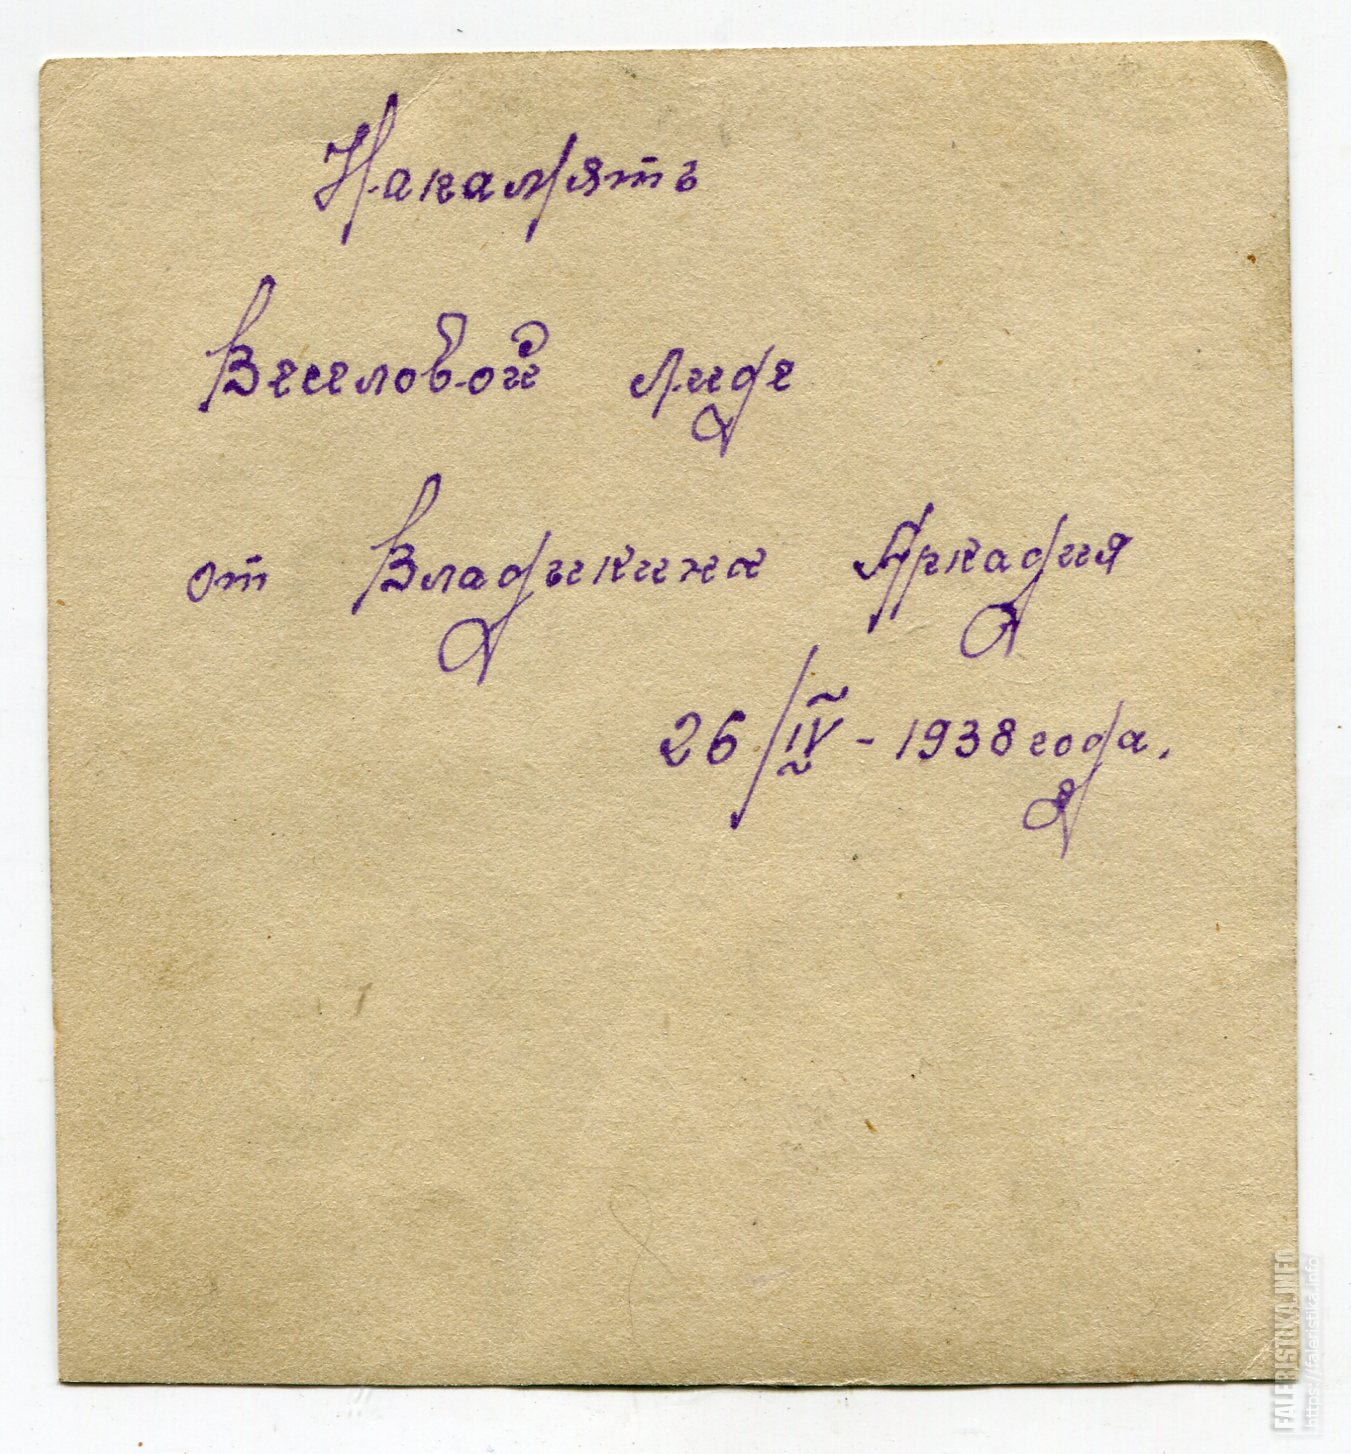 Напамять
Веселовой Лиде
от Владыкина Аркадия
26/IV - 1938 года.
FALERISTIKA.INFO
https://faleristika.info